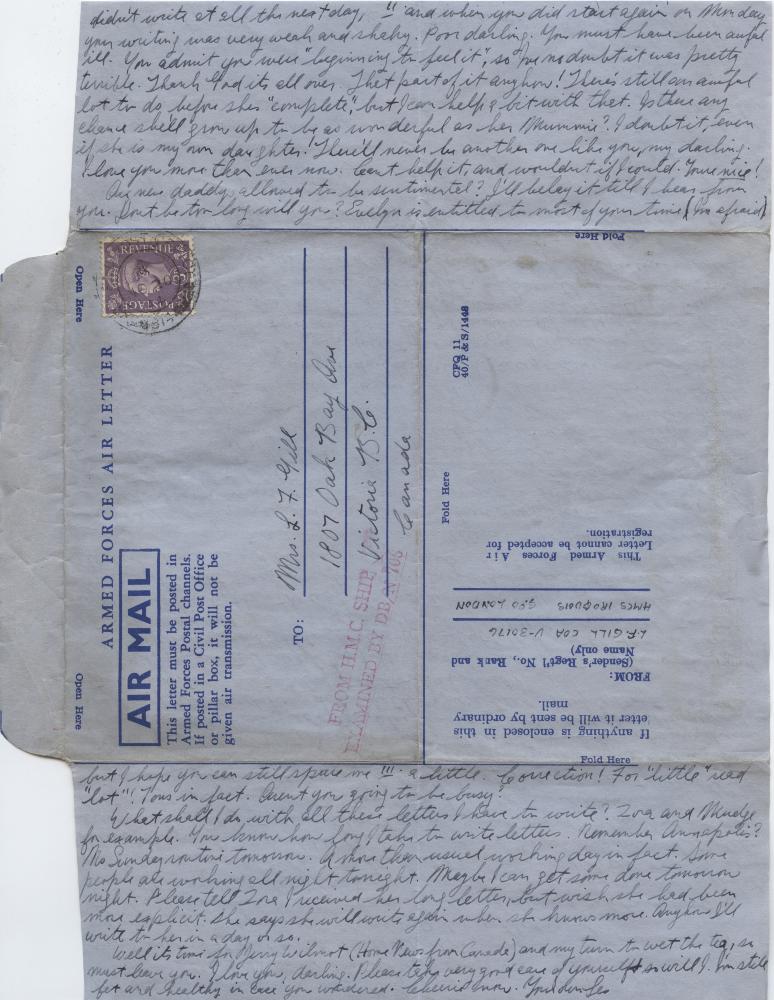 didn't write at all the next day, !! and when you did start again on Monday
your writing was very weak and shaky. Poor darling. You must have been awful
ill. You admit you were "beginning to feel it", so I've no doubt it was pretty
terrible. Thank God its all over. That part of it anyhow! There's still an awful
lot to do before she's "complete", but I can help a bit with that. Is there any
chance she'll grow up to be as wonderful as her Mummie? I doubt it, even
if she is my own daughter. There'll never be another one like you, my darling.
I love you more than ever now. Can't help it, and wouldn't if I could. You're nice!
Are new daddys allowed to be sentimental? I'll belay it till I hear from
you. Don't be too long will you? Evelyn is entitled to most of your time (I'm afraid)
Open Here
REVENUE
POSTAGE
ARMED FORCES AIR LETTER
AIR MAIL
This letter must be posted in
Armed Forces Postal channels.
If posted in a Civil Post Office
or pillar box, it will not be
given air transmission.
Open Here
TO:
Mrs. L. F. Gill
1807 Oak Bay Ave
Victoria B.C.
Canada
FROM H.M.C. SHIP
EXAMINED BY DB/N 706
Fold Here
CFQ 11
40/P & S/1448
Fold Here
This Armed Forces Air
Letter cannot be accepted for
registration.
HMCS IROQUOIS GPO LONDON
L.F. GILL COA V-30176
FROM:
(Sender's Regt'l No., Rank and
Name only)
If anything is enclosed in this
etter it will be sent by ordinary
mail.
Fold Here
but I hope you can still spare me !!! a little. Correction! For "little" read
"lot"! Tons in fact. Aren't you going to be busy?
What shall I do with all these letters I have to write? Zoa and Mudge
for example. You know how long I take to write letters. Remember Annapolis?
No Sunday routine tomorrow. A more than usual working day in fact. Some
people are working all night tonight. Maybe I can get some done tomorrow
night. Please tell Zoa I received her long letter, but wish she had been
more explicit. She says she will write again when she knows more. Anyhow I'll
write to her in a day or so.
Well its time for Gerry Wilmot (Home News from Canada) and my turn to wet the tea, so
must leave you. I love you, darling. Please take very good care of yourself & so will I. I'm still
fit and healthy in case you wondered. Cheerio now. Your own Les